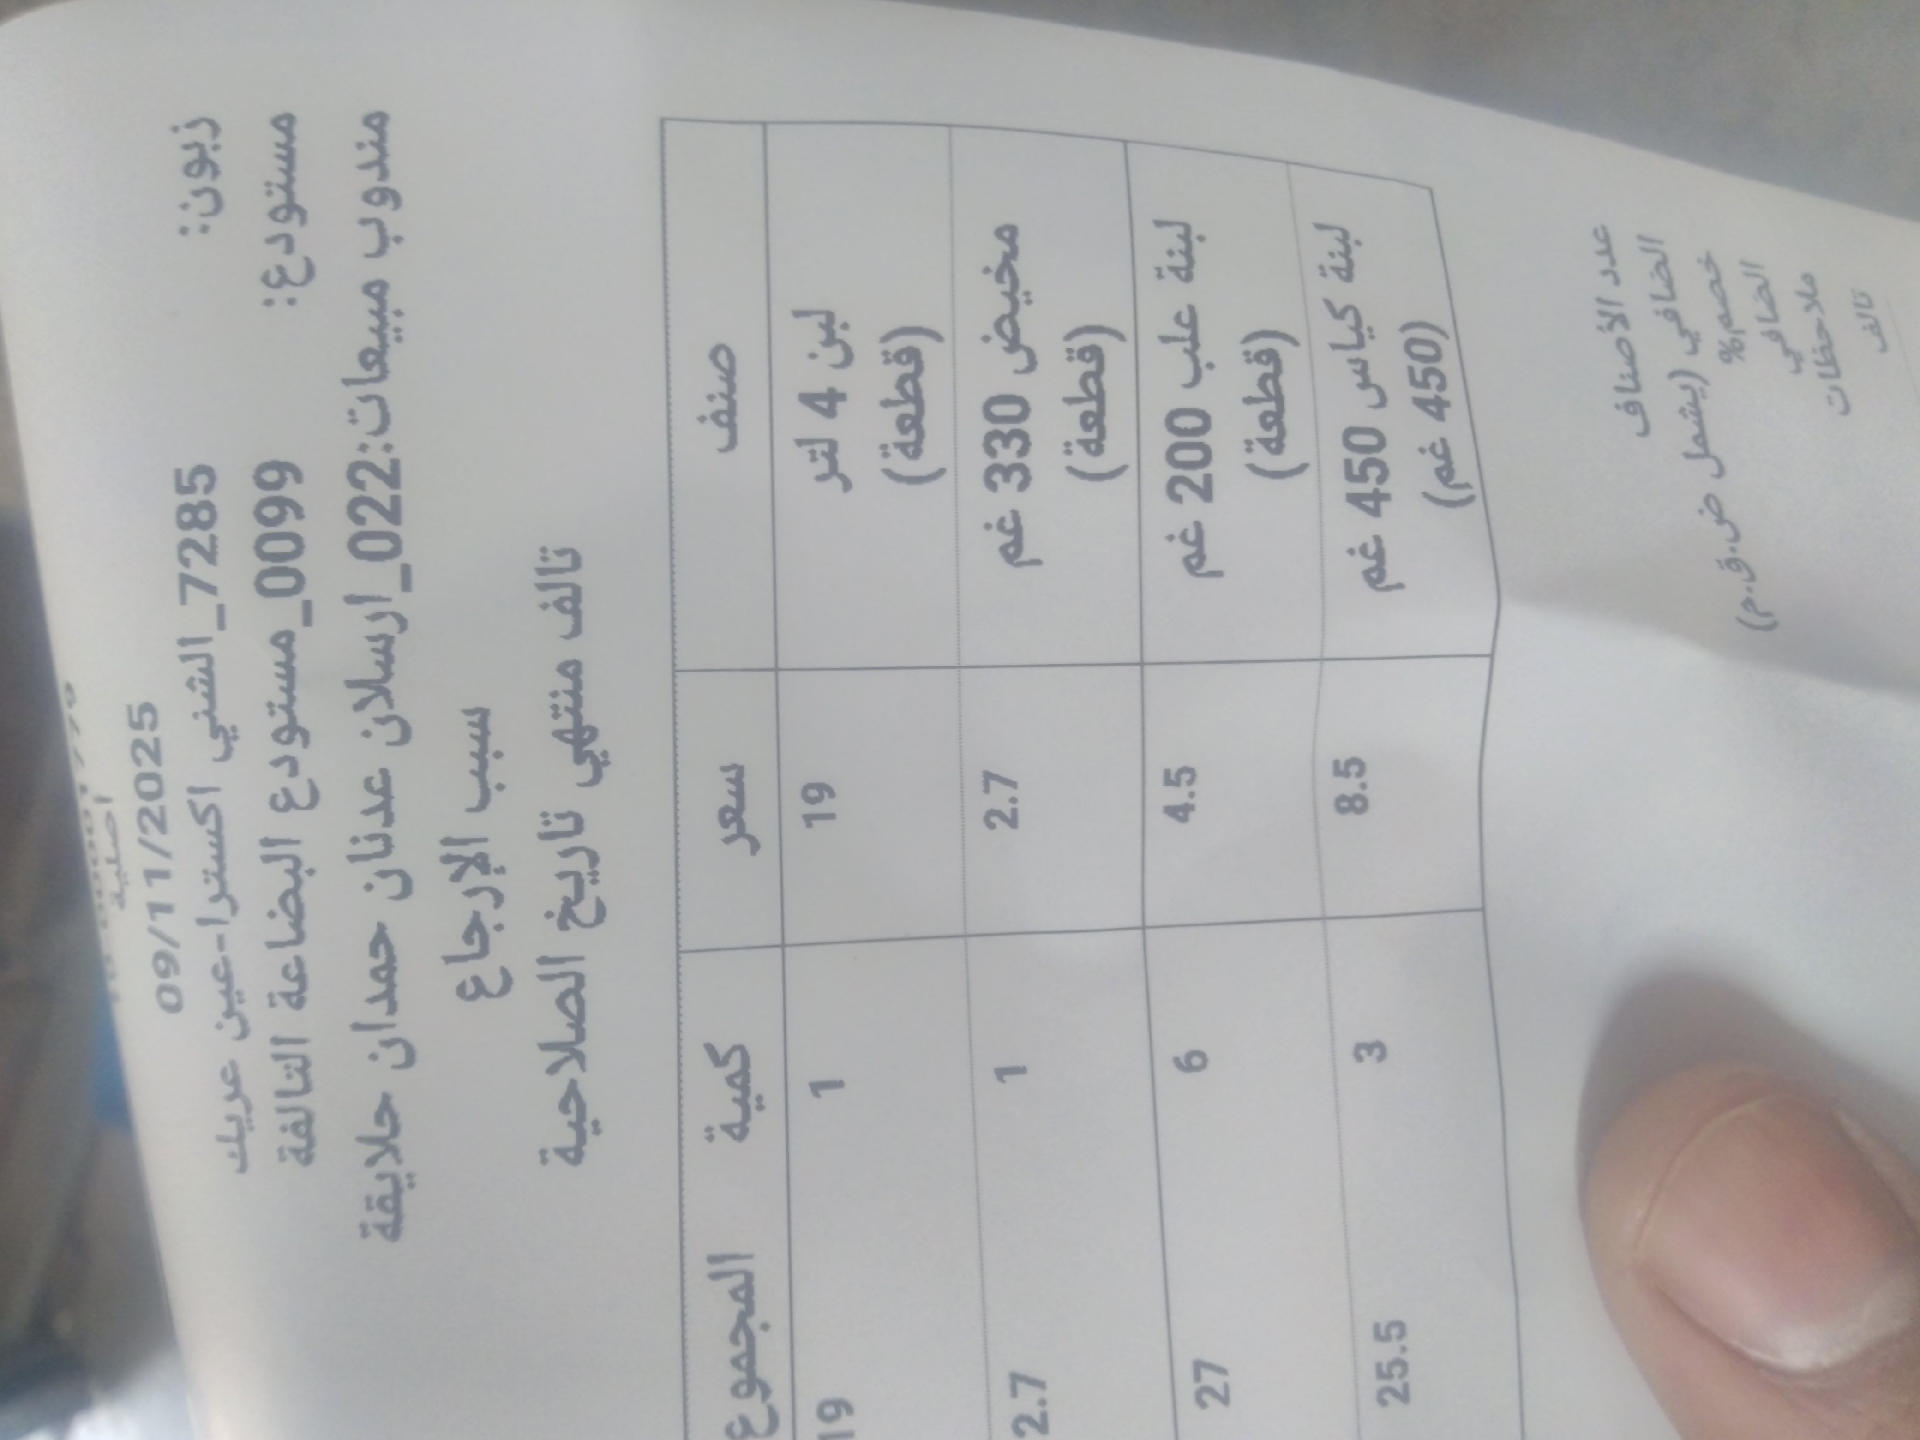 اصلية
09/11/2025
زبون: 7285_الشني اكسترا-عين عريك
مستودع: 0099_مستودع البضاعة التالفة
مندوب مبيعات:022_ارسلان عدنان حمدان حلايقة
سبب الإرجاع
تالف منتهي تاريخ الصلاحية
صنف سعر كمية المجموع
لبن 4 لتر (قطعة) 19 1 19
مخيض 330 غم (قطعة) 2.7 1 2.7
لبنة علب 200 غم (قطعة) 4.5 6 27
لبنة كياس 450 غم (450 غم) 8.5 3 25.5
عدد الأصناف
الصافي (يشمل ض.ق.م)
خصم%
الصافي
ملاحظات
تالف